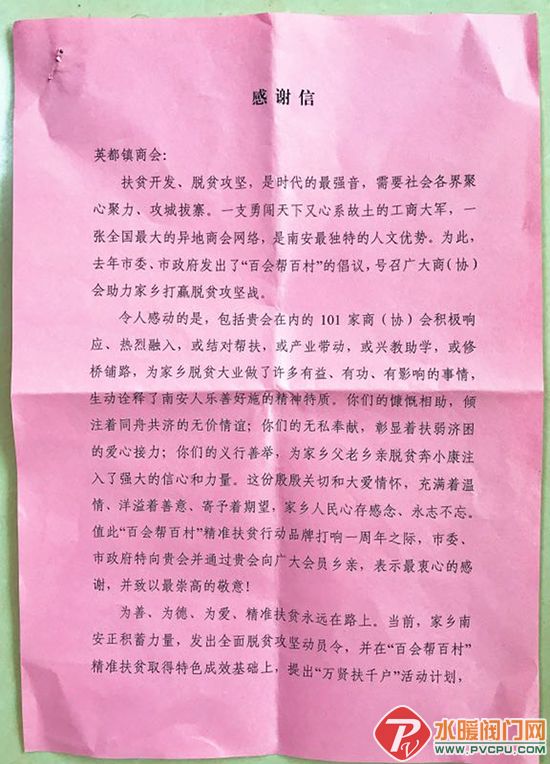 感谢信
英都镇商会：
扶贫开发、脱贫攻坚，是时代的最强音，需要社会各界聚
心聚力、攻城拔寨。一支勇闯天下又心系故土的工商大军，一
张全国最大的异地商会网络，是南安最独特的人文优势。为此，
去年市委、市政府发出了“百会帮百村”的倡议，号召广大商（协）
会助力家乡打赢脱贫攻坚战。
令人感动的是，包括贵会在内的 101 家商（协）会积极响
应、热烈融入，或结对帮扶，或产业带动，或兴教助学，或修
桥铺路，为家乡脱贫大业做了许多有益、有功、有影响的事情，
生动诠释了南安人乐善好施的精神特质。你们的慷慨相助，倾
注着同舟共济的无价情谊；你们的无私奉献，彰显着扶弱济困
的爱心接力；你们的义行善举，为家乡父老乡亲脱贫奔小康注
入了强大的信心和力量。这份殷殷关切和大爱情怀，充满着温
情、洋溢着善意、寄予着期望，家乡人民心存感念、永志不忘。
值此“百会帮百村”精准扶贫行动品牌打响一周年之际，市委、
市政府特向贵会并通过贵会向广大会员乡亲，表示最衷心的感
谢，并致以最崇高的敬意！
为善、为德、为爱，精准扶贫永远在路上。当前，家乡南
安正积蓄力量，发出全面脱贫攻坚动员令，并在“百会帮百村”
精准扶贫取得特色成效基础上，提出“万贤扶千户”活动计划，
水暖阀门网
WWW.PVCPU.COM